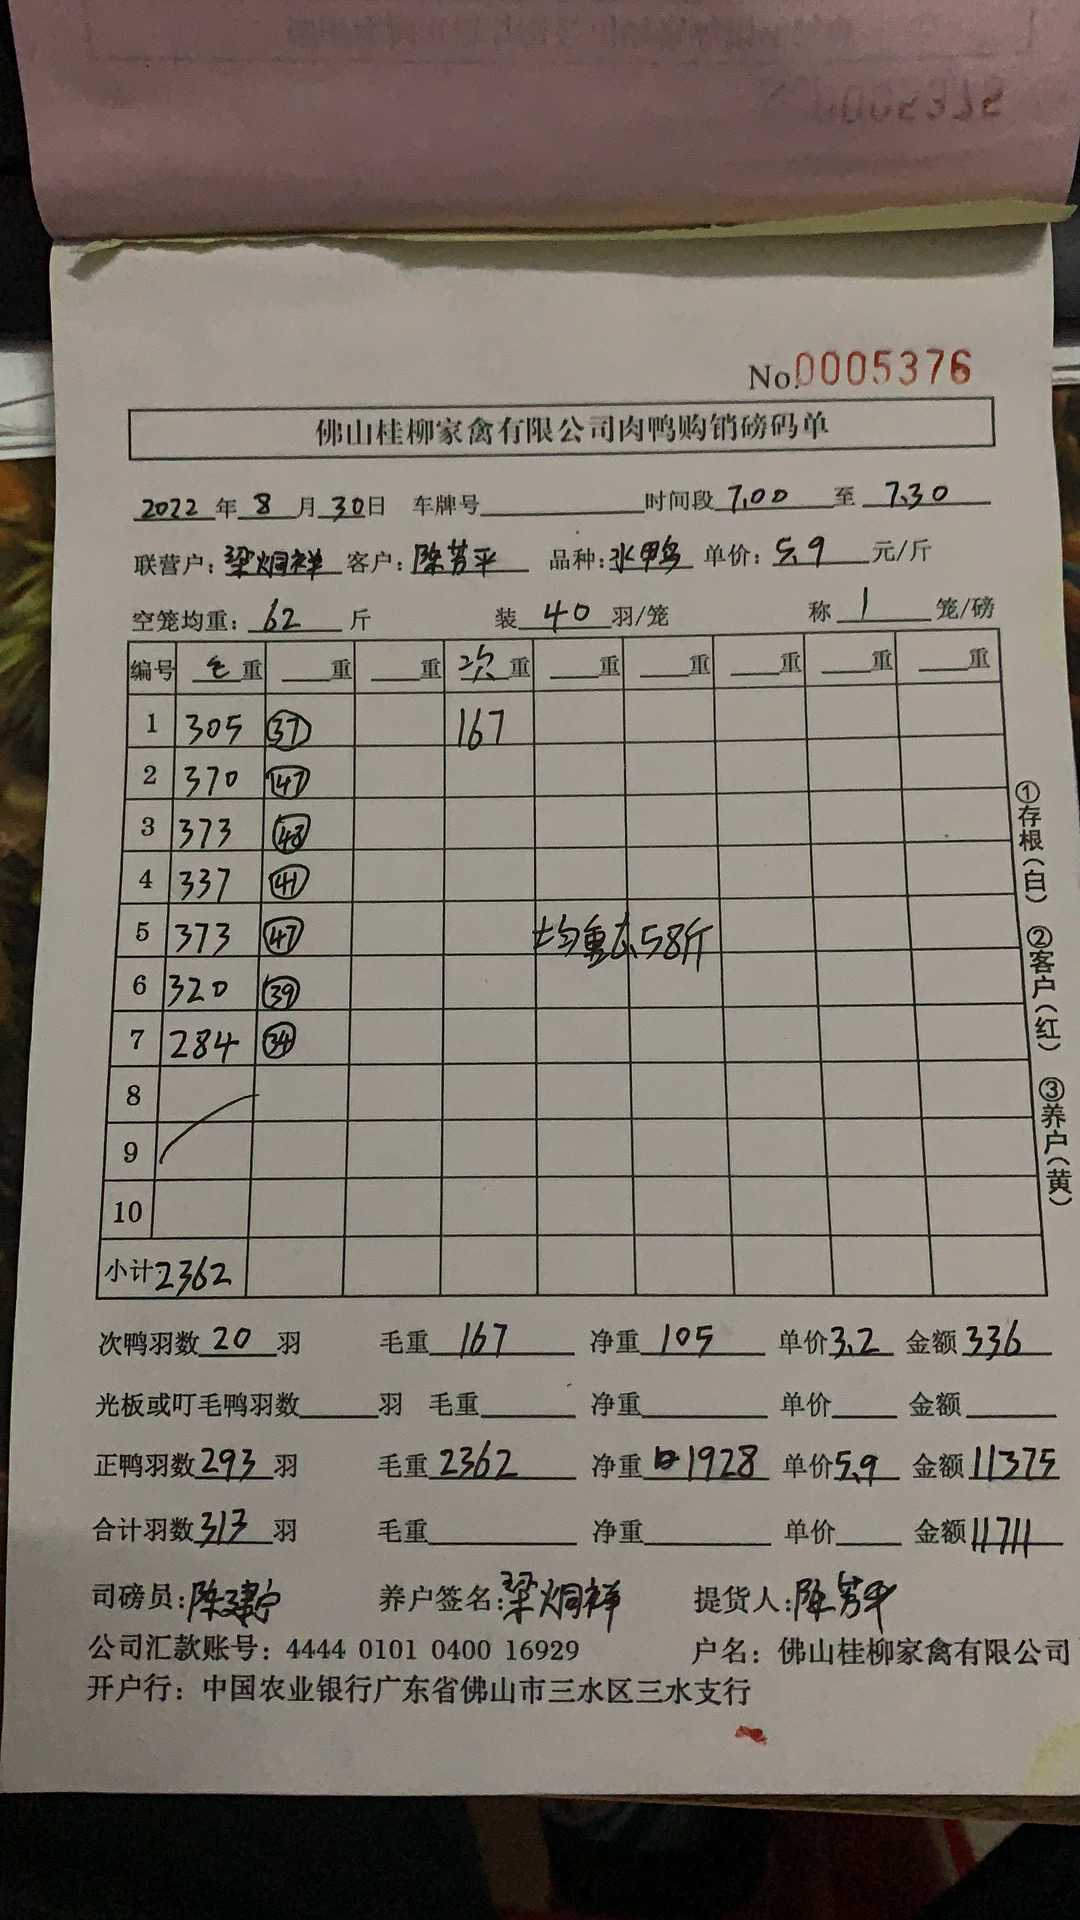 No.0005376
佛山桂柳家禽有限公司肉鸭购销磅码单
2022 年 8 月 30 日 车牌号 时间段 7.00 至 7.30
联营户: 梁炯祥 客户: 陈芳平 品种: 水鸭 单价: 5.9 元/斤
空笼均重: 62 斤 装 40 羽/笼 称 1 笼/磅
编号 毛重 重 重 次重 重 重 重 重 重
1 305 37 167
2 370 47
3 373 48
4 337 41
5 373 47 均重6.58斤
6 320 39
7 284 34
8
9
10
小计 2362
①存根(白) ②客户(红) ③养户(黄)
次鸭羽数 20 羽 毛重 167 净重 105 单价 3.2 金额 336
光板或叮毛鸭羽数 羽 毛重 净重 单价 金额
正鸭羽数 293 羽 毛重 2362 净重 1928 单价 5.9 金额 11375
合计羽数 313 羽 毛重 净重 单价 金额 11711
司磅员: 陈建宁 养户签名: 梁炯祥 提货人: 陈芳平
公司汇款账号: 4444 0101 0400 16929 户名: 佛山桂柳家禽有限公司
开户行: 中国农业银行广东省佛山市三水区三水支行